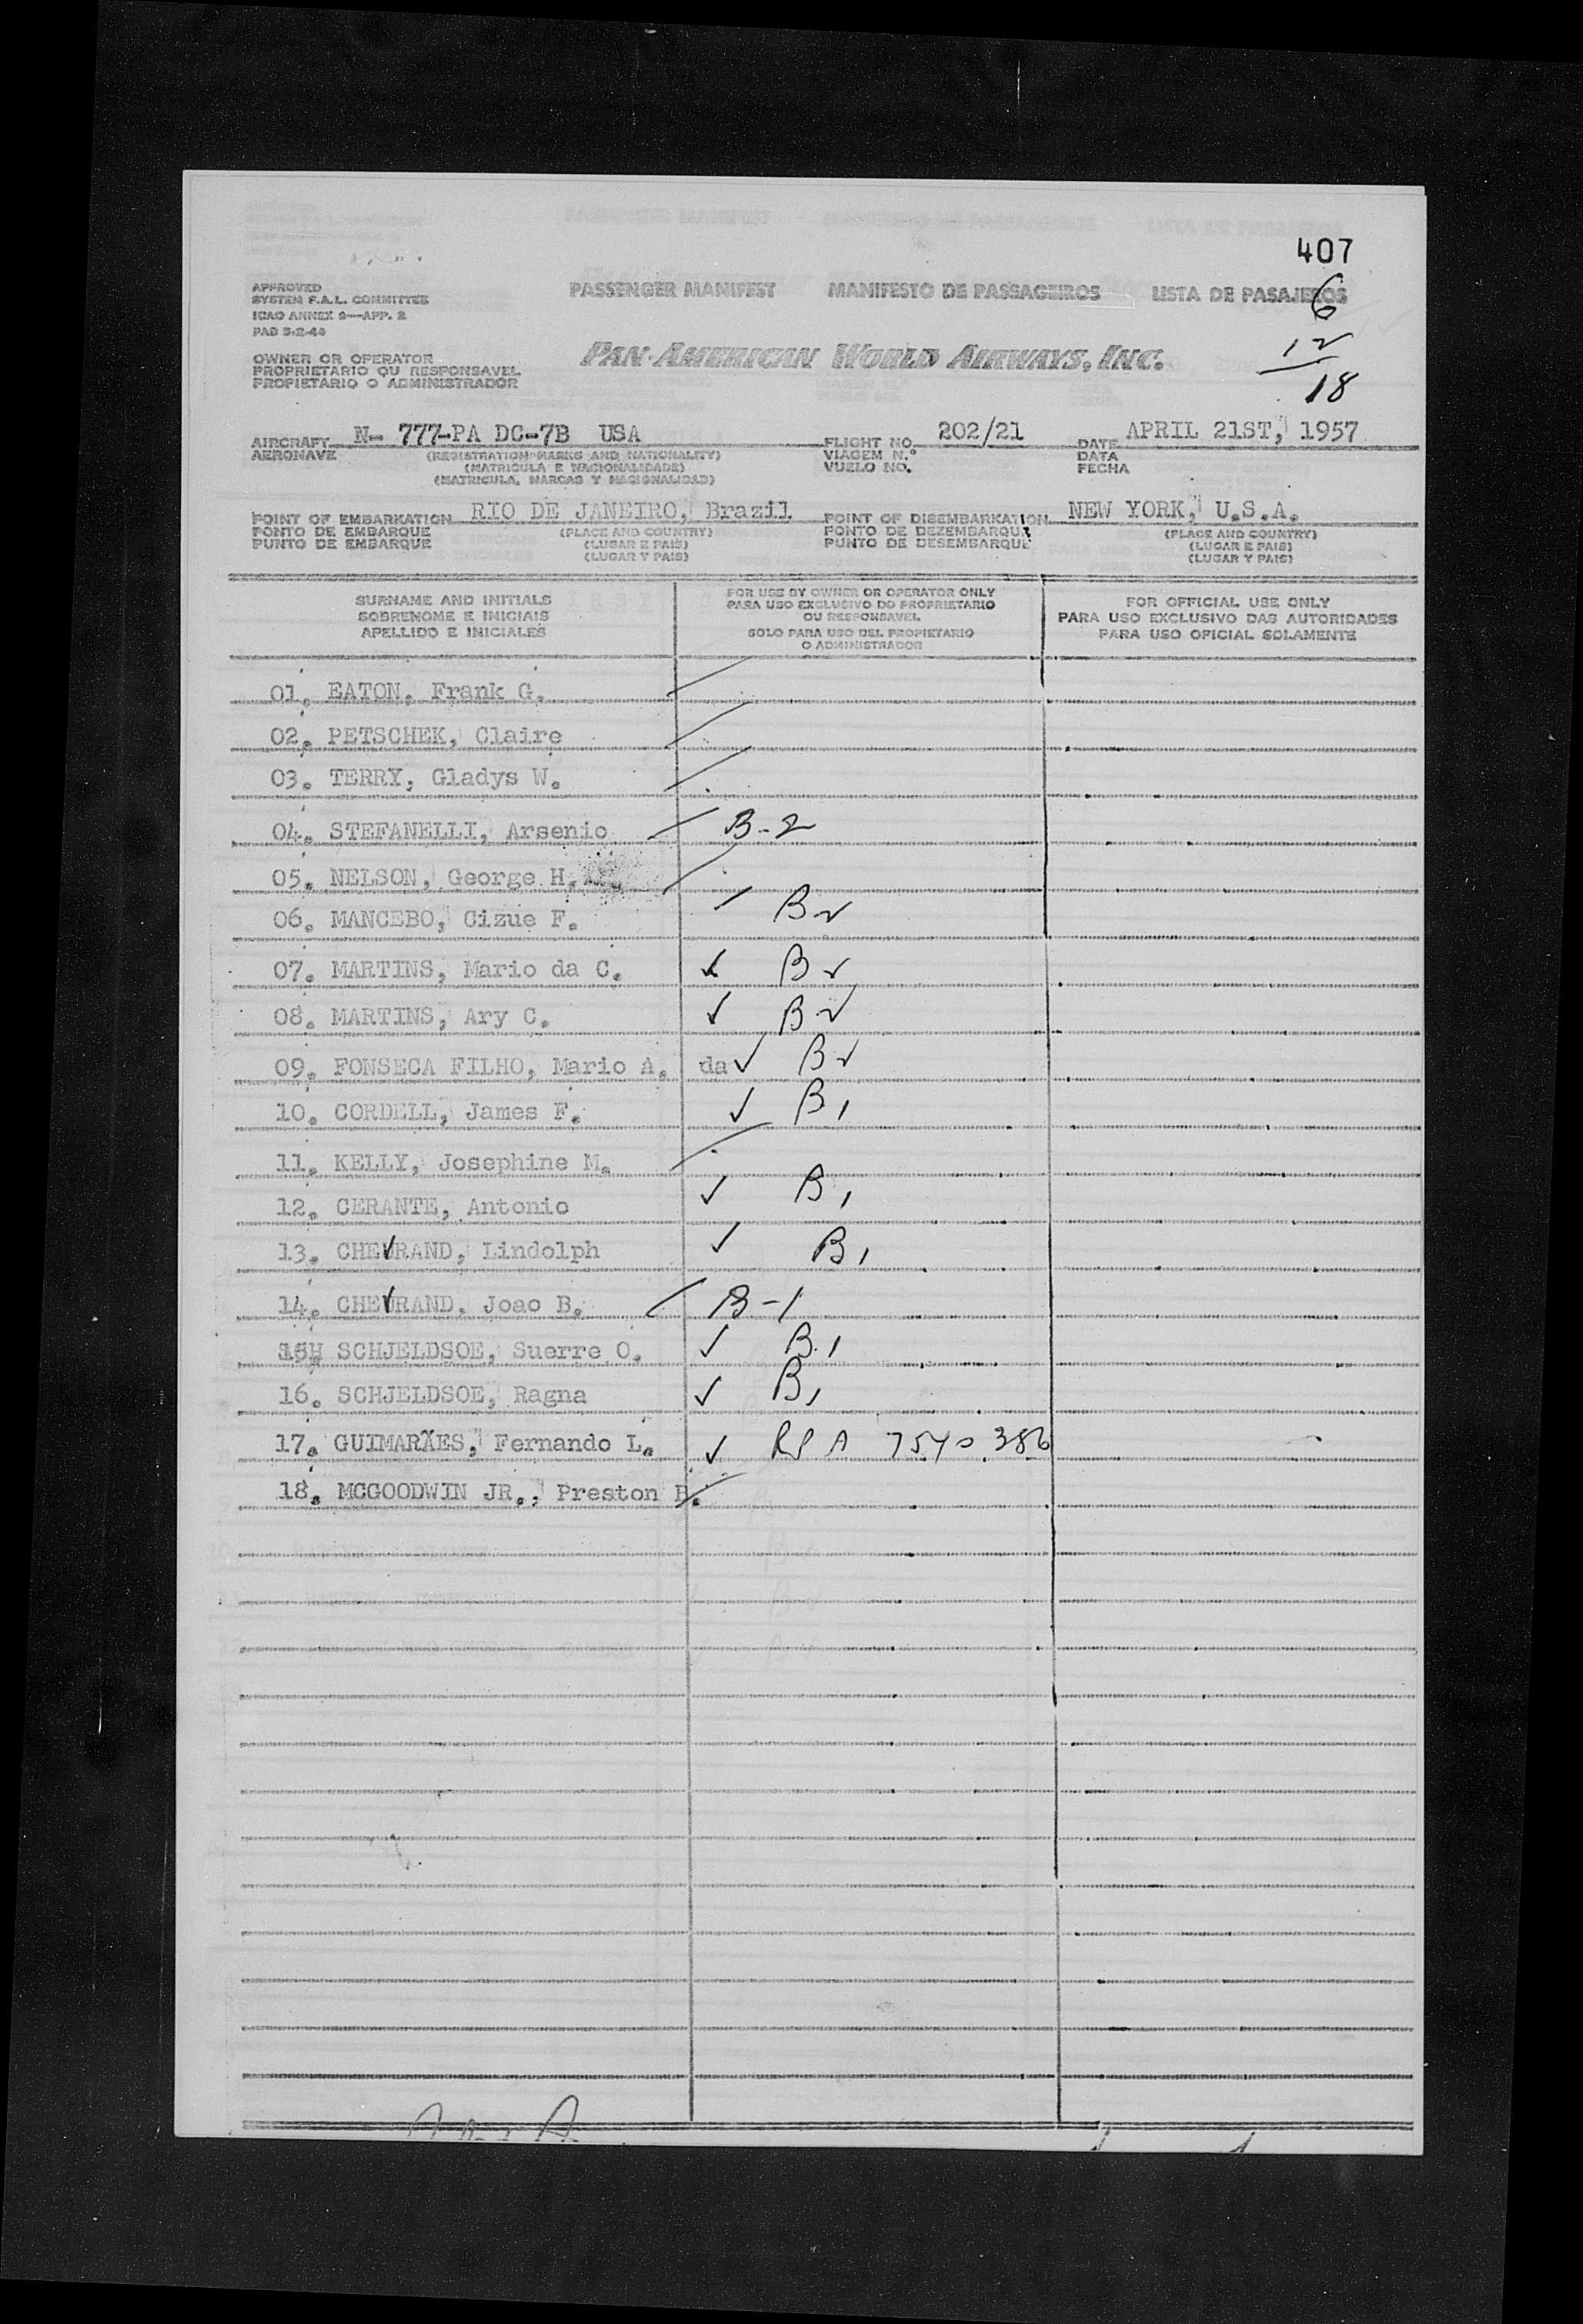 407
APPROVED
SYSTEM F.A.L. COMMITTEE
ICAO ANNEX 9—APP. 2
PAD 5-2-44
PASSENGER MANIFEST MANIFESTO DE PASSAGEIROS LISTA DE PASAJEROS
6
12
18
OWNER OR OPERATOR
PROPRIETARIO OU RESPONSAVEL
PROPIETARIO O ADMINISTRADOR
PAN AMERICAN WORLD AIRWAYS, INC.
AIRCRAFT N- 777-PA DC-7B USA FLIGHT NO. 202/21 DATE APRIL 21ST, 1957
AERONAVE (REGISTRATION MARKS AND NATIONALITY) VIAGEM N.° DATA
(MATRICULA E NACIONALIDADE) VUELO NO. FECHA
(MATRICULA, MARCAS Y NACIONALIDAD)
POINT OF EMBARKATION RIO DE JANEIRO, Brazil POINT OF DISEMBARKATION NEW YORK, U.S.A.
PONTO DE EMBARQUE (PLACE AND COUNTRY) PONTO DE DEZEMBARQUE (PLACE AND COUNTRY)
PUNTO DE EMBARQUE (LUGAR E PAIS) PUNTO DE DESEMBARQUE (LUGAR E PAIS)
(LUGAR Y PAIS) (LUGAR Y PAIS)
SURNAME AND INITIALS
SOBRENOME E INICIAIS
APELLIDO E INICIALES
FOR USE BY OWNER OR OPERATOR ONLY
PARA USO EXCLUSIVO DO PROPRIETARIO
OU RESPONSAVEL
SOLO PARA USO DEL PROPIETARIO
O ADMINISTRADOR
FOR OFFICIAL USE ONLY
PARA USO EXCLUSIVO DAS AUTORIDADES
PARA USO OFICIAL SOLAMENTE
01. EATON, Frank G.
02. PETSCHEK, Claire
03. TERRY, Gladys W.
04. STEFANELLI, Arsenio B-2
05. NELSON, George H.
06. MANCEBO, Cizue F. B2
07. MARTINS, Mario da C. ✓ B2
08. MARTINS, Ary C. ✓ B2
09. FONSECA FILHO, Mario A. da ✓ B2
10. CORDELL, James F. ✓ B1
11. KELLY, Josephine M.
12. CERANTE, Antonio ✓ B1
13. CHEVRAND, Lindolph ✓ B1
14. CHEVRAND, Joao B. B-1
15. SCHJELDSOE, Suerre O. ✓ B.1
16. SCHJELDSOE, Ragna ✓ B1
17. GUIMARÃES, Fernando L. ✓ A 7540386
18. MCGOODWIN JR., Preston B.